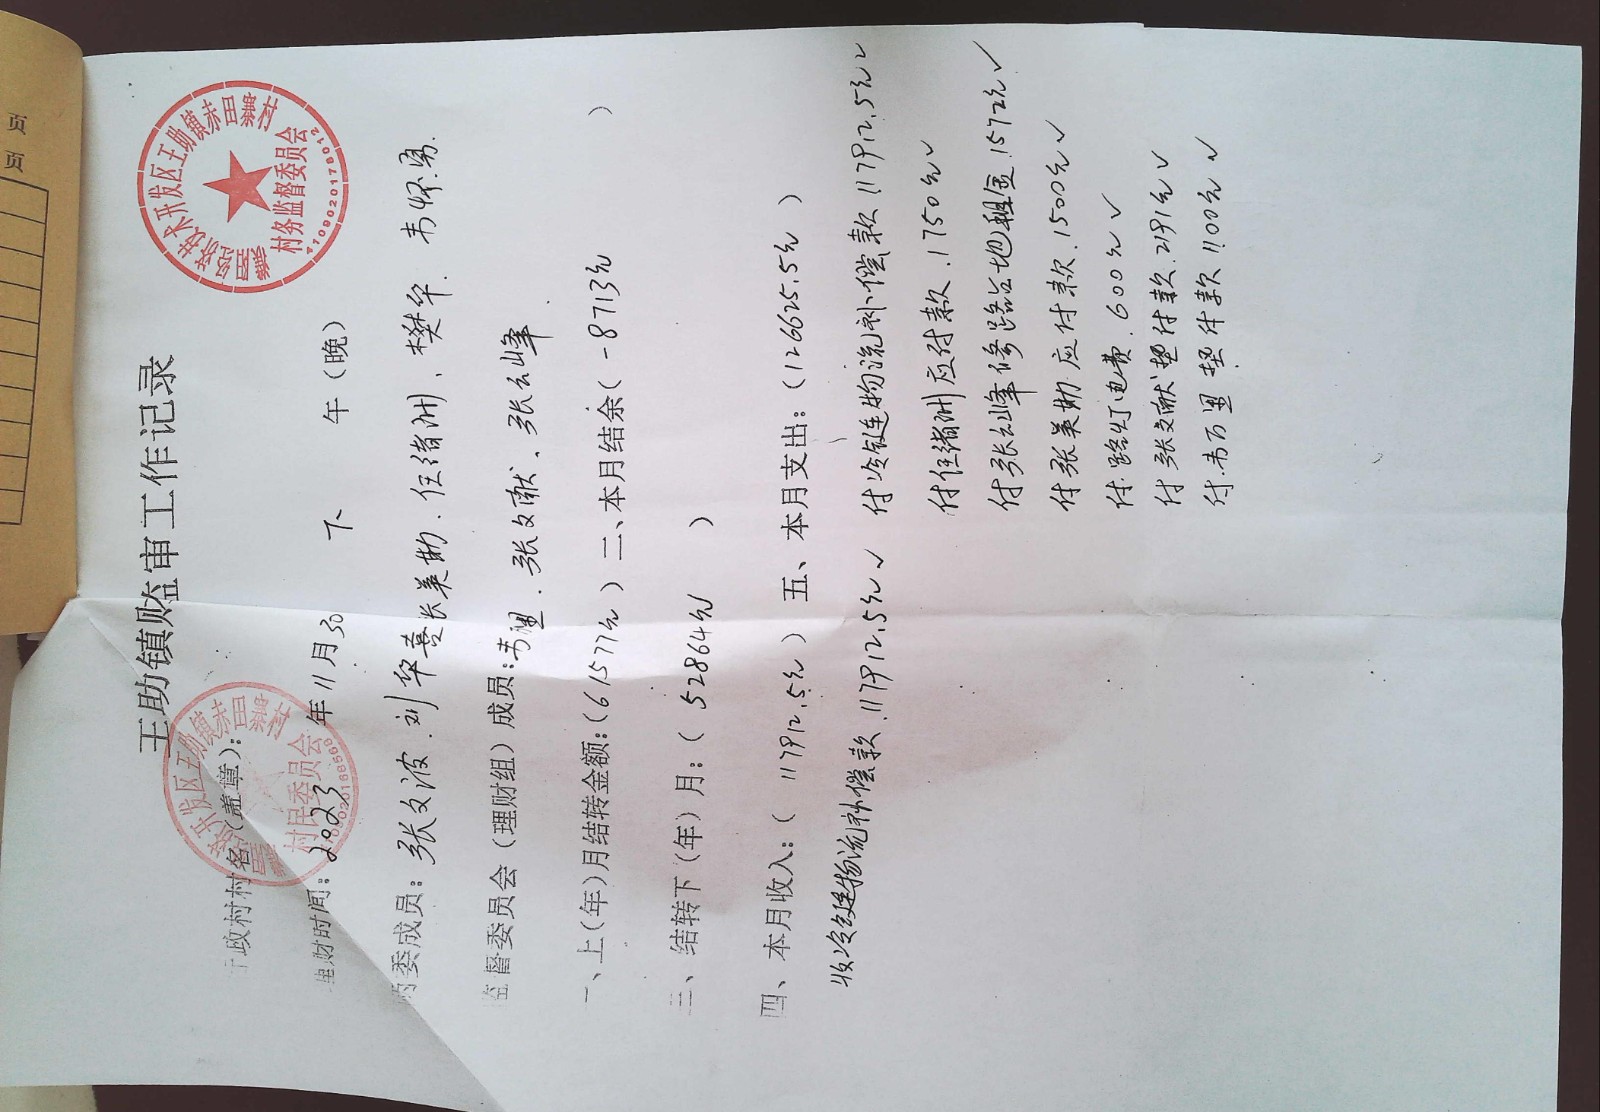 页
页
王助镇财监审工作记录
政村村名(盖章):
技术开发区王助镇
村务监督委员会
4109020178012
开发区王助镇
村民委员会
理财时间: 2023 年 11 月 30 下 午(晚)
两委成员: 张文波、刘华喜、张美勤、任绪洲、樊华、韦怀勇
监督委员会(理财组)成员: 张文献、张云峰
一、上(年)月结转金额:(61577元) 二、本月结余(-8713元 )
三、结转下(年)月:( 52864元 )
四、本月收入:( 117912.5元 ) 五、本月支出:(126625.5元 )
收冷链物流补偿款.117912.5元✓
付冷链物流补偿款117912.5元✓
付任绪洲应付款.1750元✓
付张云峰修路占地租金.1572元✓
付张美勤应付款.1500元✓
付.路灯电费.600元✓
付张文献垫付款.2191元✓
付.韦万里垫付款1100元✓